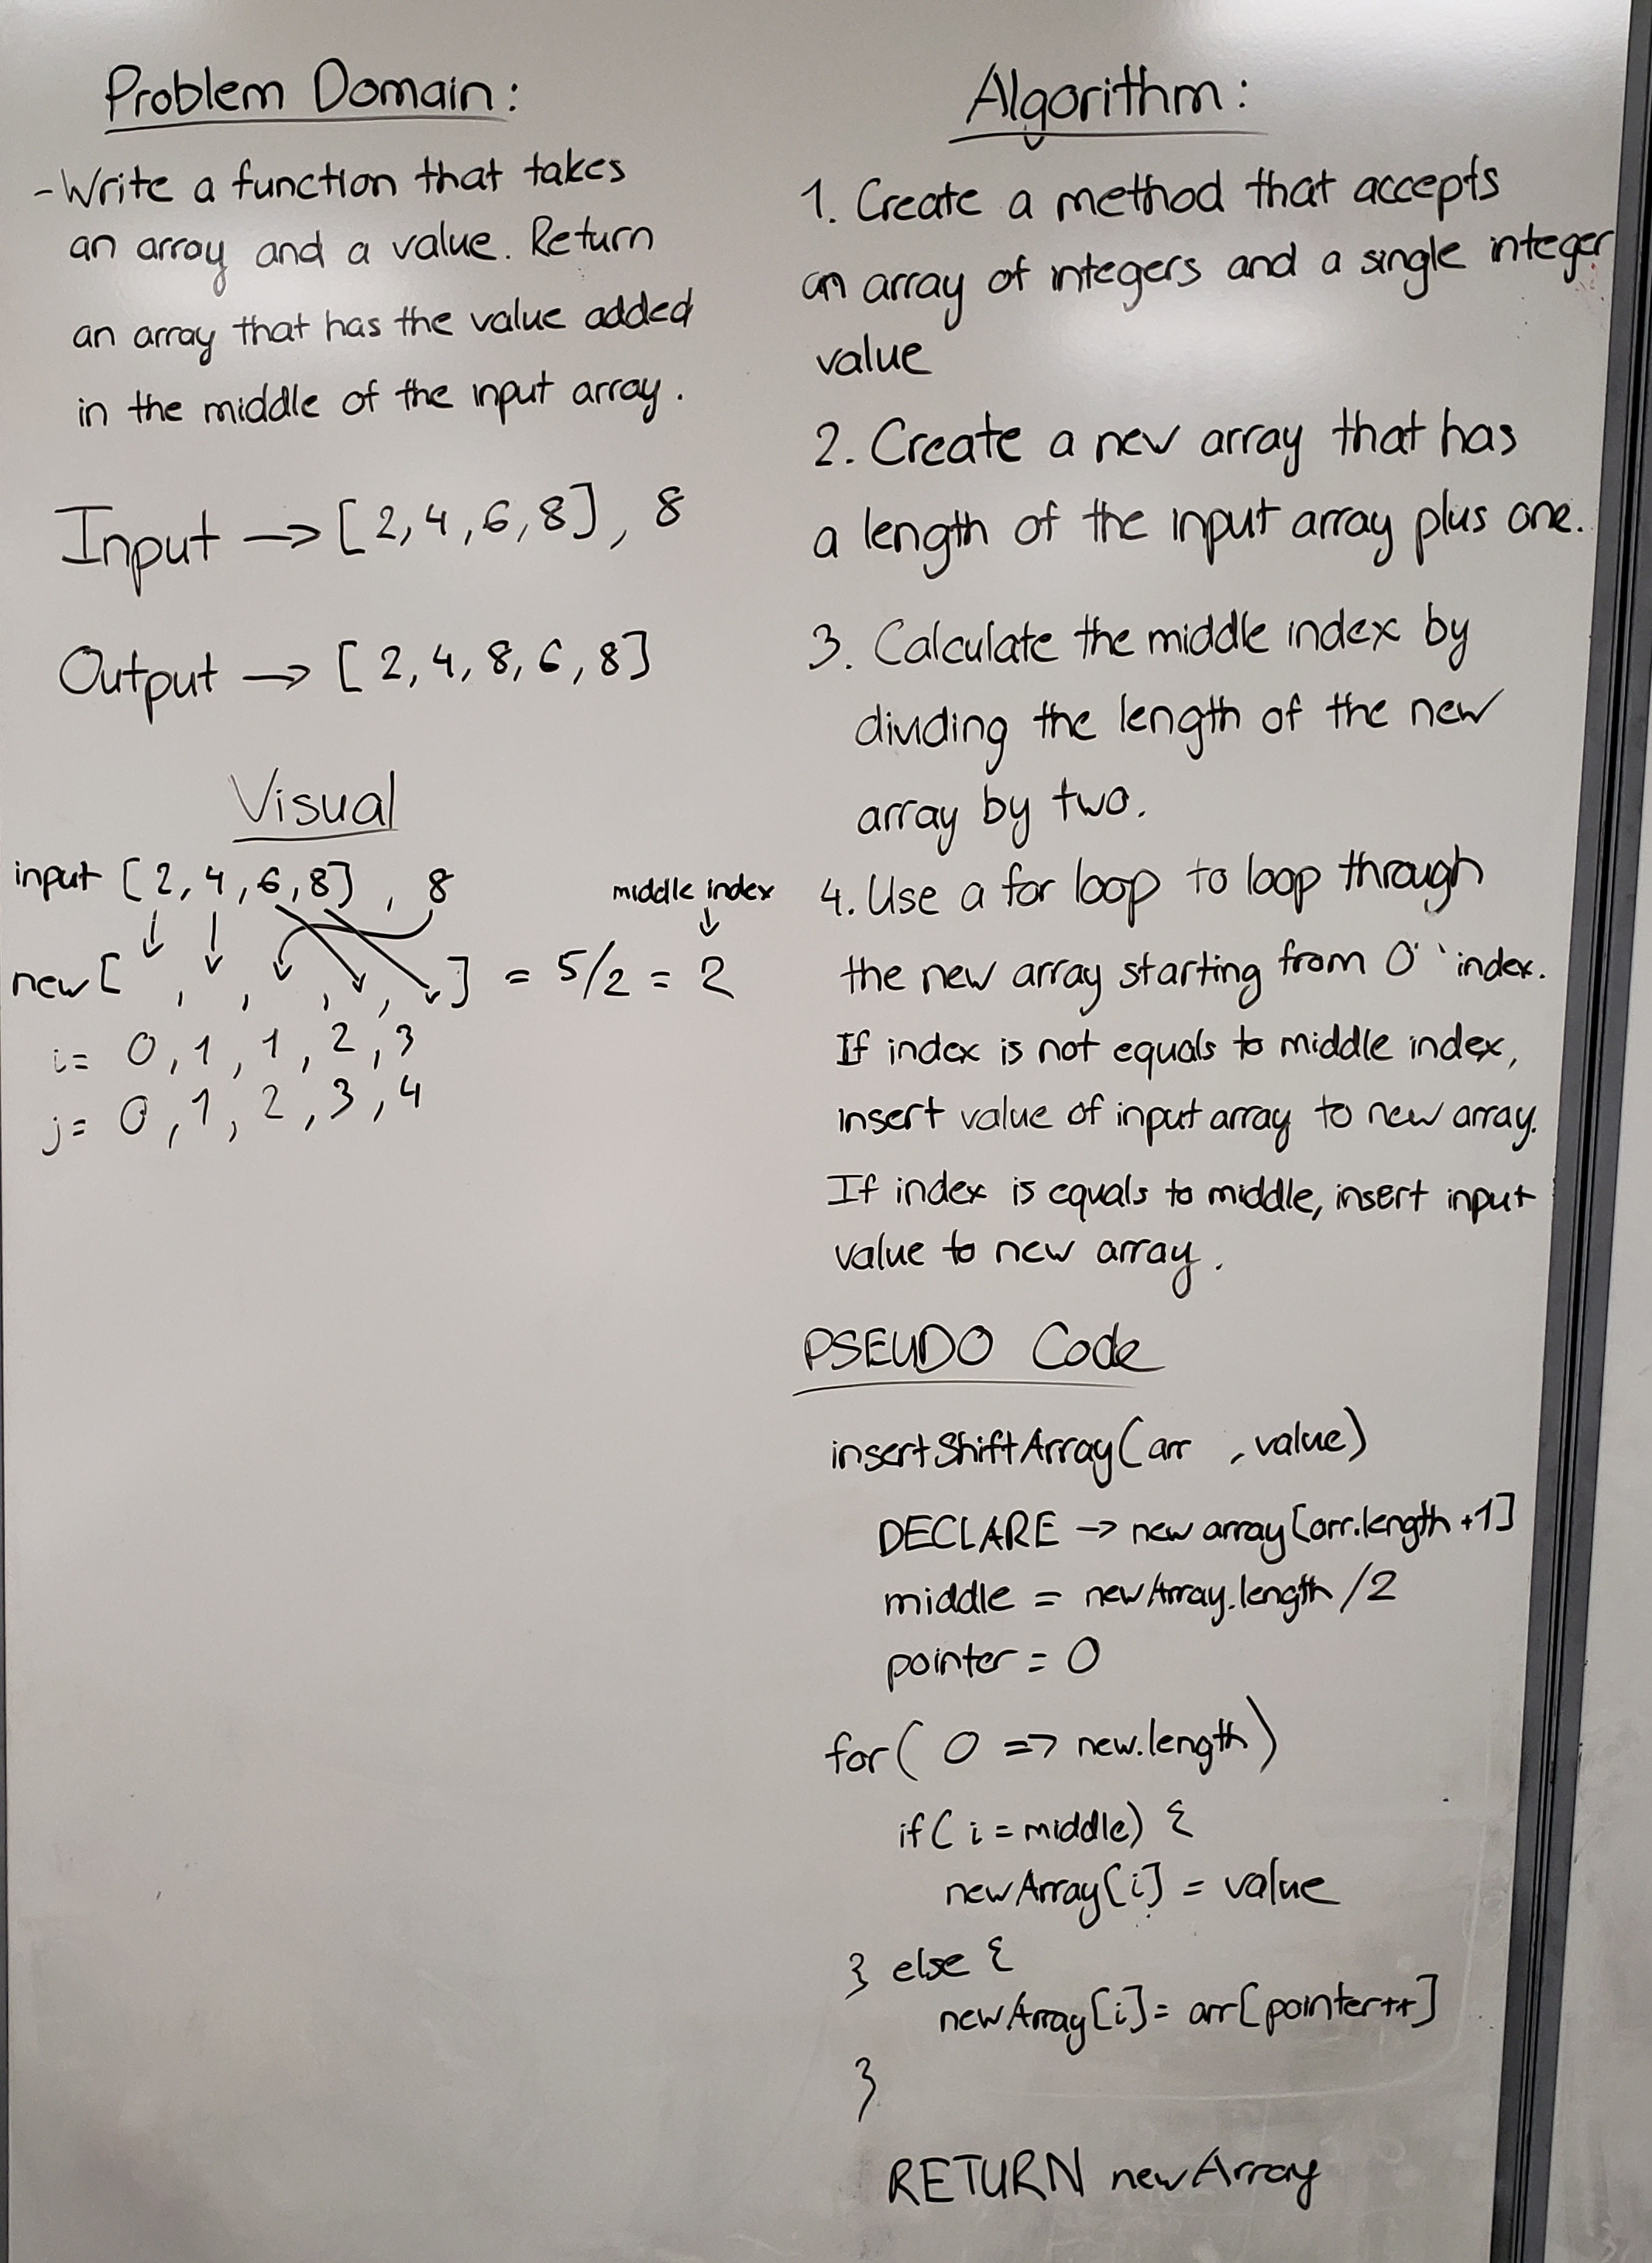 Problem Domain:
-Write a function that takes
an array and a value. Return
an array that has the value added
in the middle of the input array.
Input → [2,4,6,8], 8
Output → [2,4,8,6,8]
Visual
input [2,4,6,8], 8
middle index
↓
new [ , , , , ] = 5/2 = 2
i= 0,1,1,2,3
j= 0,1,2,3,4
Algorithm:
1. Create a method that accepts
an array of integers and a single integer
value
2. Create a new array that has
a length of the input array plus one.
3. Calculate the middle index by
dividing the length of the new
array by two.
4. Use a for loop to loop through
the new array starting from 0 index.
If index is not equals to middle index,
insert value of input array to new array.
If index is equals to middle, insert input
value to new array.
PSEUDO Code
insertShiftArray(arr , value)
DECLARE → new array[arr.length +1]
middle = newArray.length /2
pointer = 0
for( 0 => new.length)
if( i = middle) {
newArray[i] = value
} else {
newArray[i]= arr[pointer++]
}
RETURN newArray